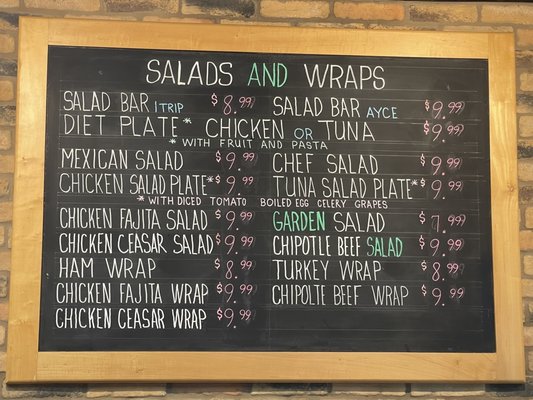 SALADS AND WRAPS
SALAD BAR 1 TRIP $8.99 SALAD BAR AYCE $9.99
DIET PLATE* CHICKEN OR TUNA $9.99
* WITH FRUIT AND PASTA
MEXICAN SALAD $9.99 CHEF SALAD $9.99
CHICKEN SALAD PLATE* $9.99 TUNA SALAD PLATE* $9.99
* WITH DICED TOMATO BOILED EGG CELERY GRAPES
CHICKEN FAJITA SALAD $9.99 GARDEN SALAD $7.99
CHICKEN CEASAR SALAD $9.99 CHIPOTLE BEEF SALAD $9.99
HAM WRAP $8.99 TURKEY WRAP $8.99
CHICKEN FAJITA WRAP $9.99 CHIPOLTE BEEF WRAP $9.99
CHICKEN CEASAR WRAP $9.99